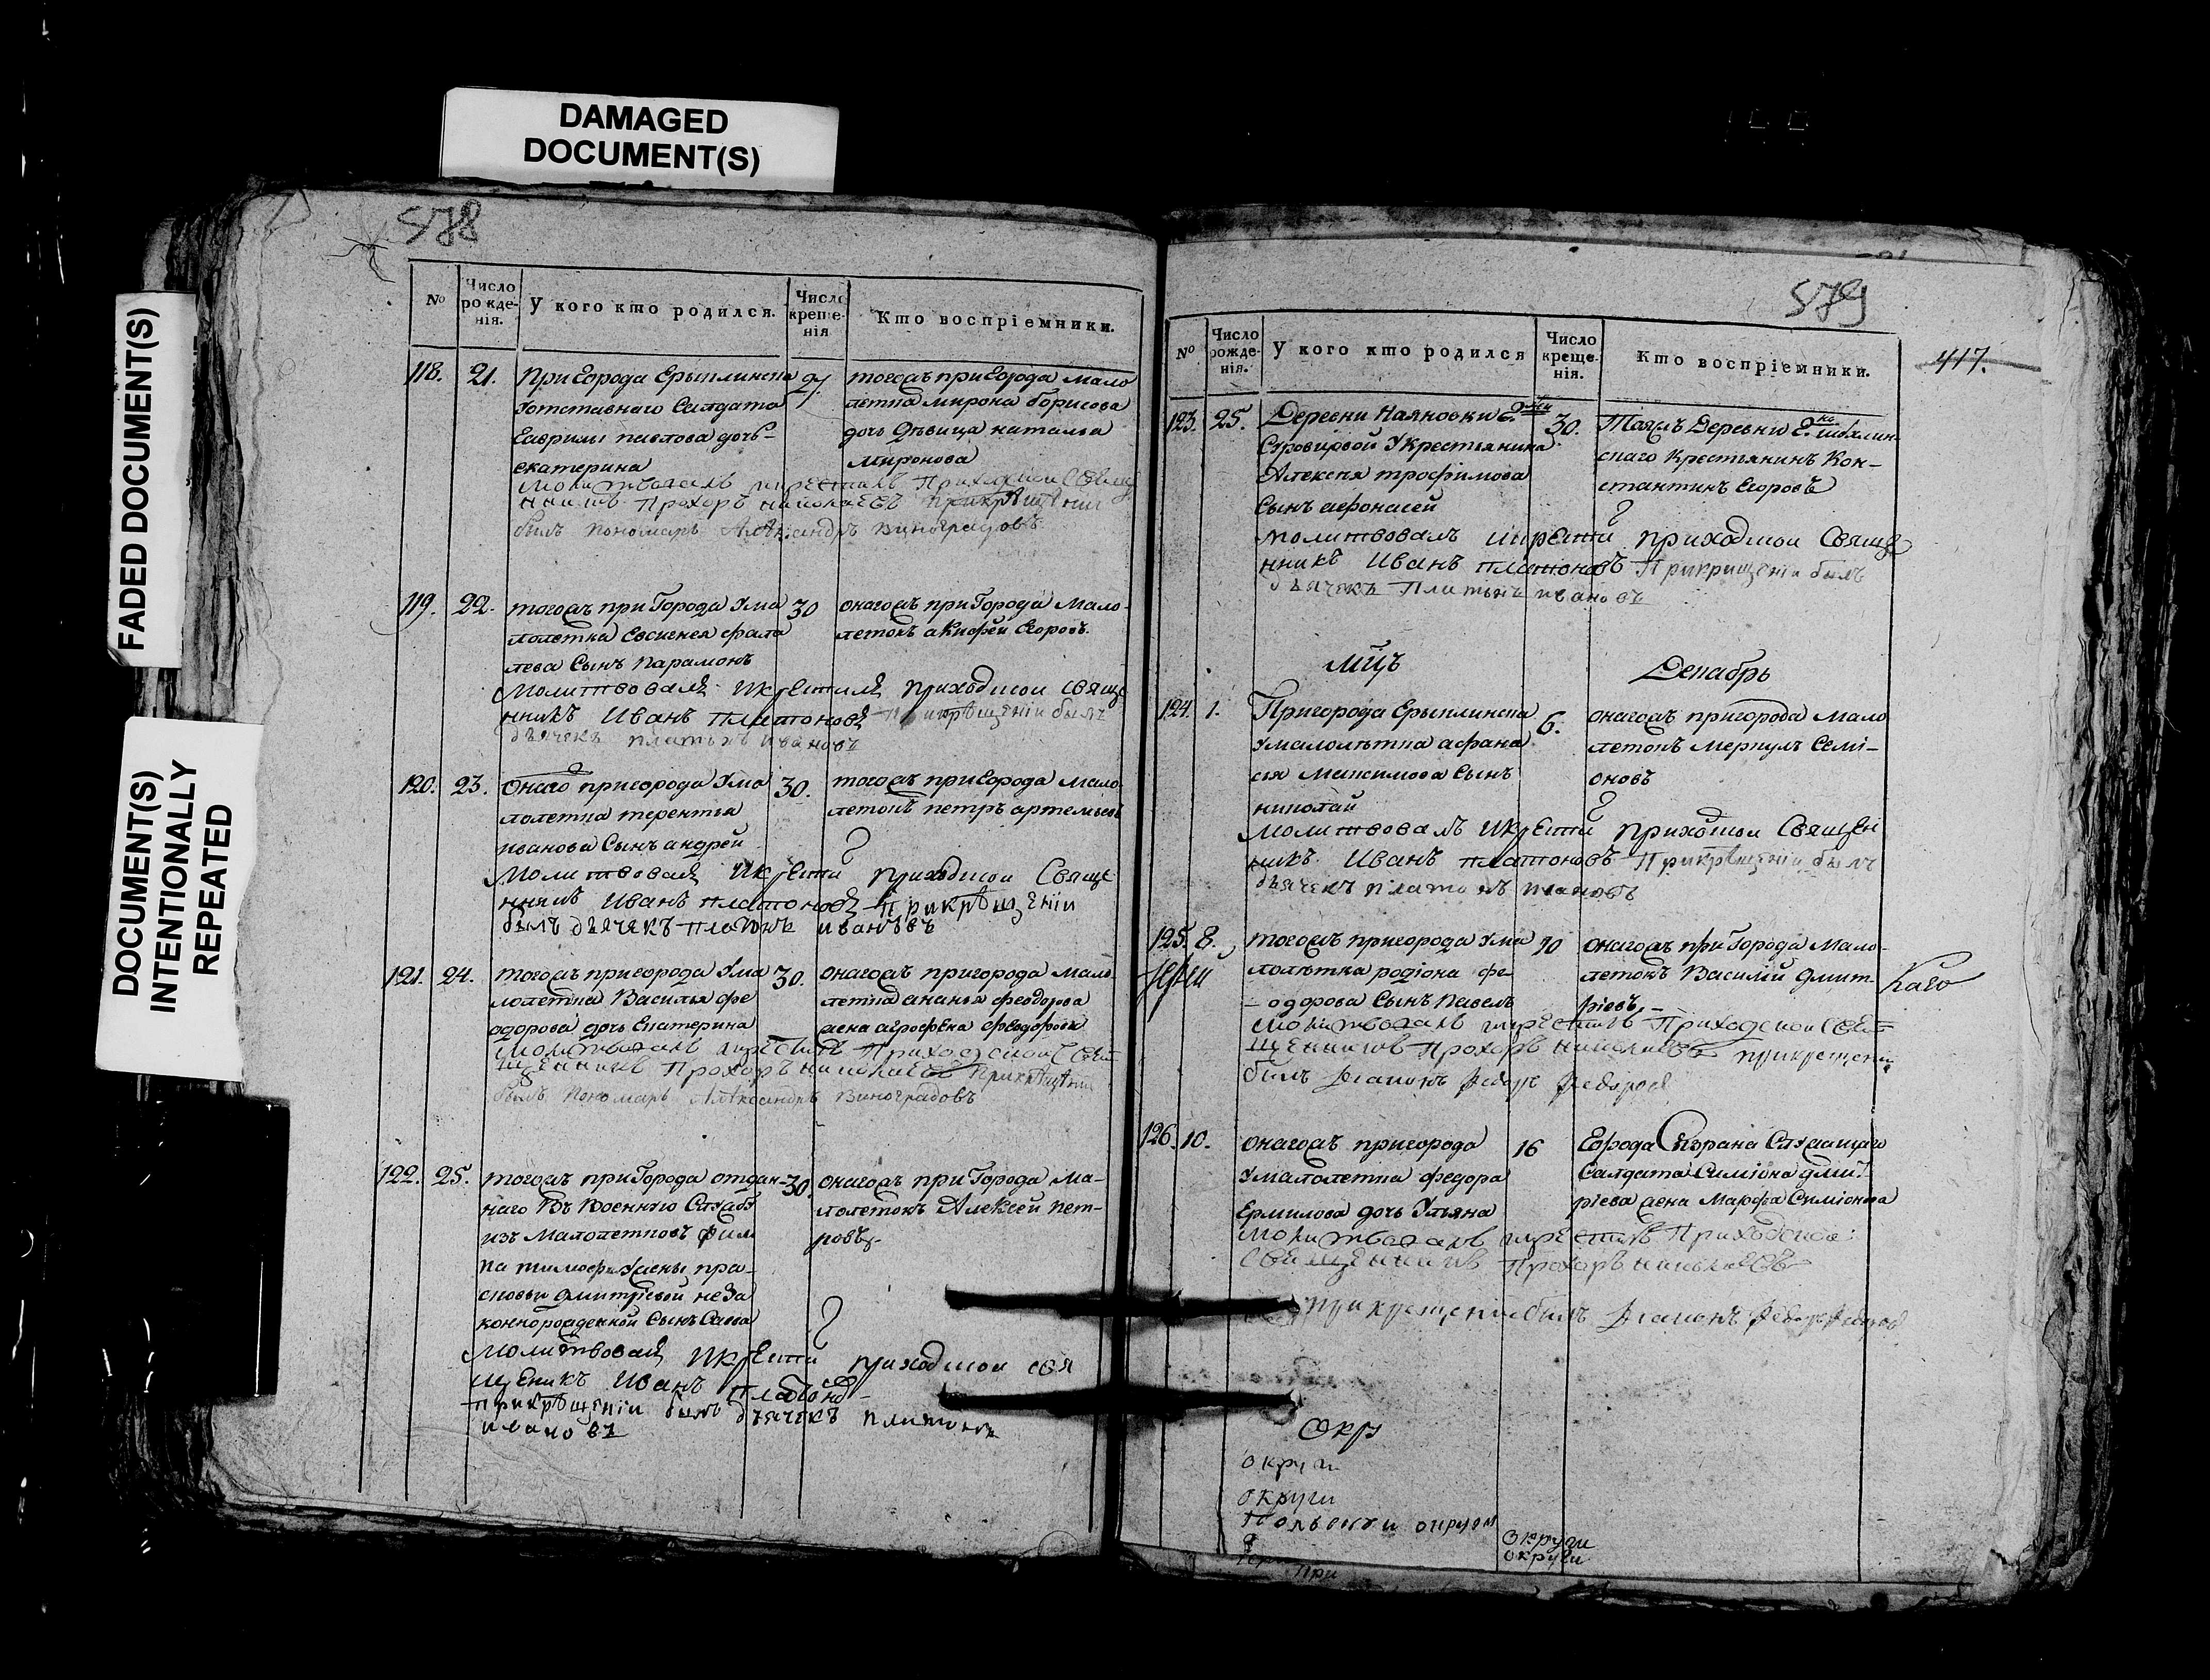 DAMAGED
DOCUMENT(S)
FADED DOCUMENT(S)
DOCUMENT(S)
INTENTIONALLY
REPEATED
578
№
Число рожденія.
У кого кто родился.
Число крещенія
Кто воспріемники.
118. 21.
Пригорода Ерыклинска
Уотставнаго Салдата
Гаврилы павлова дочь
екатерина
27
тогожъ пригорода мало
летка мирона борисова
дочь дѣвица наталья
миронова
молитвовалъ икрестилъ Приходской Свящ
нникъ Прохоръ николаевъ прикрѣщении
былъ пономарь Александръ Виноградовъ
119. 22.
тогожъ пригорода Ума
лолетка Евсигнея фрала
лева Сынъ парамонъ
30
онагожъ пригорода Мало
летокъ акифей Егоровъ.
молитвовалъ икрестилъ приходской Свяще
нникъ Иванъ платоновъ прикрѣщеніи былъ
дьячекъ платонъ ивановъ
120. 23.
Онаго пригорода Ума
лолетка терентья
иванова Сынъ андрей
30.
тогожъ пригорода мало
летокъ петръ артемьевъ
Молитвовалъ икрести приходской Свяще
нникъ Иванъ платоновъ прикрѣщеніи
былъ дьячекъ платонъ ивановъ
121. 24.
тогожъ пригорода Ума
лолетка Василья фе
одорова дочь Екатерина
30.
онагожъ пригорода мало
летка ананья феодорова
жена агрофена феодорова
молитвовалъ икрестилъ Приходской Свя
щенникъ Прохоръ николаевъ прикрѣщении
былъ пономарь Александръ Виноградовъ
122. 25.
тогожъ пригорода отдан-
наго Въ Военную Службу
изъ малолетковъ фили
па тимофе Жены пра-
сковьи дмитріевой неза
коннорожденной Сынъ Сава
30.
онагожъ пригорода Ма-
лолетокъ Алексей пет-
ровъ.
Молитвовалъ икрести приходской свя
щеникъ Иванъ платоно
прикрѣщеніи былъ дьячекъ платонъ
ивановъ
579
417.
№
Число рожденія.
У кого кто родился
Число крещенія.
Кто воспріемники.
123. 25.
Деревни Наяновки Г.жи
Укрестьянина
Алексея трофимова
Сынъ афонасей
30.
Таяжъ Деревни Г.
скаго Крестьянинъ Кон-
стантинъ Егоровъ
молитвовалъ икрести приходской Свяще
нникъ Иванъ платоновъ прикрищеніи былъ
дьячекъ Платонъ ивановъ
МЦЪ
Декабрь
124. 1.
Пригорода Ерыклинска
Умалолѣтка афана
сья Максимова Сынъ
николай
6.
онагожъ пригорода Мало
летокъ меркулъ Семі-
оновъ
молитвовалъ икрести приходской Священ
никъ Иванъ платоновъ прикрѣщеніи былъ
дьячекъ платонъ ивановъ
125. 8.
тогожъ пригорода Ума
лолѣтка родіона фе
одорова Сынъ павелъ
10
онагожъ пригорода Мало-
летокъ Василій дмит-
ріевъ,
молитвовалъ икрестилъ Приходской Свя
щенникъ Прохоръ николаевъ прикрещени
былъ Діаконъ Федоръ Федоровъ
126. 10.
онагожъ пригорода
Умалолетка федора
Ермилова дочь Ульяна
16
Города Сызрана Служащаго
Салдата Симіона дмит
ріева жена Марфа Симіонова
молитвовалъ икрестилъ Приходской
Священникъ Прохоръ николаевъ
прикрещении былъ Діаконъ Федоръ Федоров
Окр
округи
округи
округи
округи
округи
При